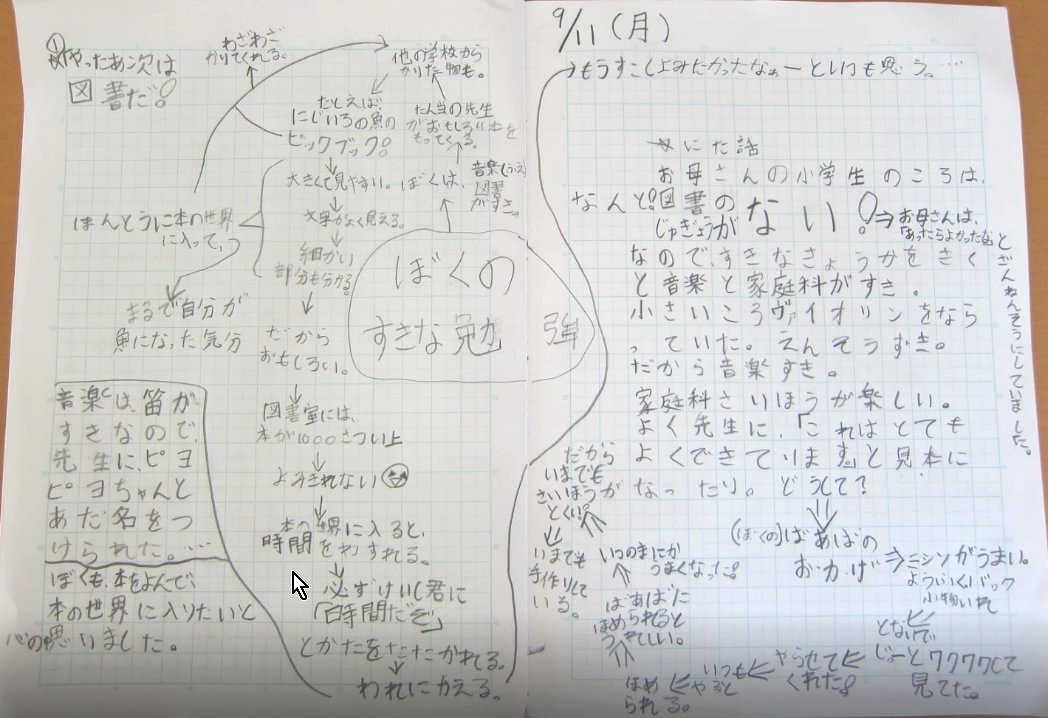 ①やったあ次は
図書だ!
わざわざ
かりてくれる。
他の学校から
かりた物も。
たとえば、
にじいろの魚の
ビックブック!
たん当の先生
がおもしろい本を
もってくる。
大きくて見やすい。
ぼくは、
音楽(ふえ)
図書
がすき。
文字がよく見える。
細かい
部分も分かる。
だから
おもしろい。
図書室には、
本が1000さつい上
よみきれない
本の世界に入ると、
時間をわすれる。
必ずけいし君に
「百時間だぞ」
とかたをたたかれる。
われにかえる。
ほんとうに本の世界
に入って、
まるで自分が
魚になった気分
ぼくの
すきな勉強
音楽は、笛が
すきなので、
先生に、ピヨ
ピヨちゃんと
あだ名をつ
けられた。…
ぼくも、本をよんで、
本の世界に入りたいと
心の中思いました。
9/11(月)
もうすこしよみたかったなぁーといつも思う。……
にた話
お母さんの小学生のころは、
なんと!図書の
じゅぎょうが
ない!
お母さんは、
「あったらよかったな」
とざんねんそうにしていました。
なので、すきなきょうかをきく
と音楽と家庭科がすき。
小さいころヴァイオリンをなら
っていた。えんそうずき。
だから音楽すき。
家庭科さいほうが楽しい。
よく先生に、「これはとても
よくできています」と見本に
なったり。どうして?
(ぼくの)ばあばの
おかげ
ミシンがうまい。
よういくバック
小物いれ
となりで
じーっとワクワクして
見てた。
やらせて
くれた!
いつも
やると
ほめ
られる。
ばあばに
ほめられると
うれしい。
いつのまにか
うまくなった!
だから
いまでも
さいほうが
とくい。
いまでも
手作りして
いる。